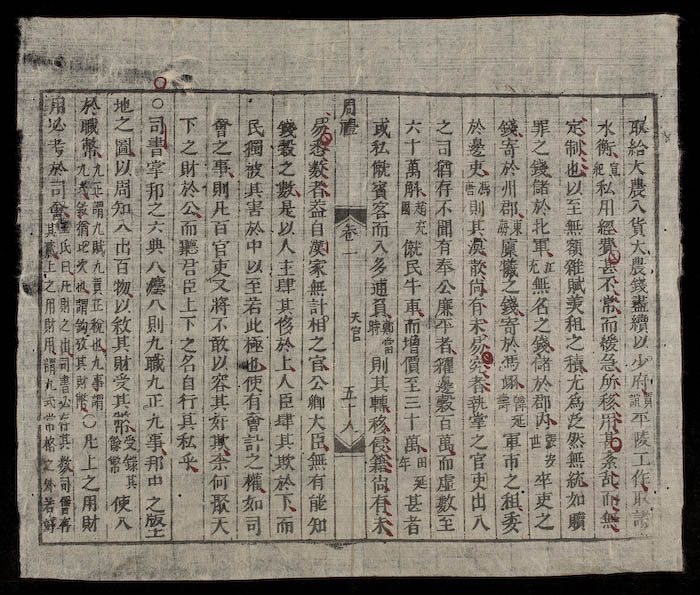 取給大農入貨大農錢盡續以少府賈誼平陵工作取諸
水衡宣紀私用經費甚不常而緩急所移用甚紊乱而無
定制也以至無額雜賦羨租之積尤為泛然無統如贖
罪之錢儲於北軍無名之錢儲於郡内卒吏之
錢寄於州郡稟犧之錢寄於馮翊韓延壽軍市之租委
於邊吏馮唐則其渙散尚有未易察者執掌之官吏出入
之司猶有不聞有奉公廉平者糴邊穀百萬而虛數至
六十萬斛趙充國僦民牛車而增價至三十萬田延年甚者
或私僦賓客而入多逋負鄭當時則其轉移侵欺尚有未
周禮 卷一 天官 五十八
易悉數者益自漢家無計相之官公卿大臣無有能知
錢穀之數是以人主肆其侈於上人臣肆其欺於下而
民獨被其害於中以至若此極也使有會計之權如司
會之事則凡百官吏又將不敢以容其奸欺奈何聚天
下之財於公而聽君臣上下之名自行其私乎
○司書掌邦之六典八灋八則九職九正九事邦中之版土
地之圖以周知入出百物以敘其財受其幣受錄其餘幣使入
於職幣九正謂九賦九貢正稅也九事謂九式敘猶比次也謂鉤攷其財幣○凡上之用財
用必考於司會